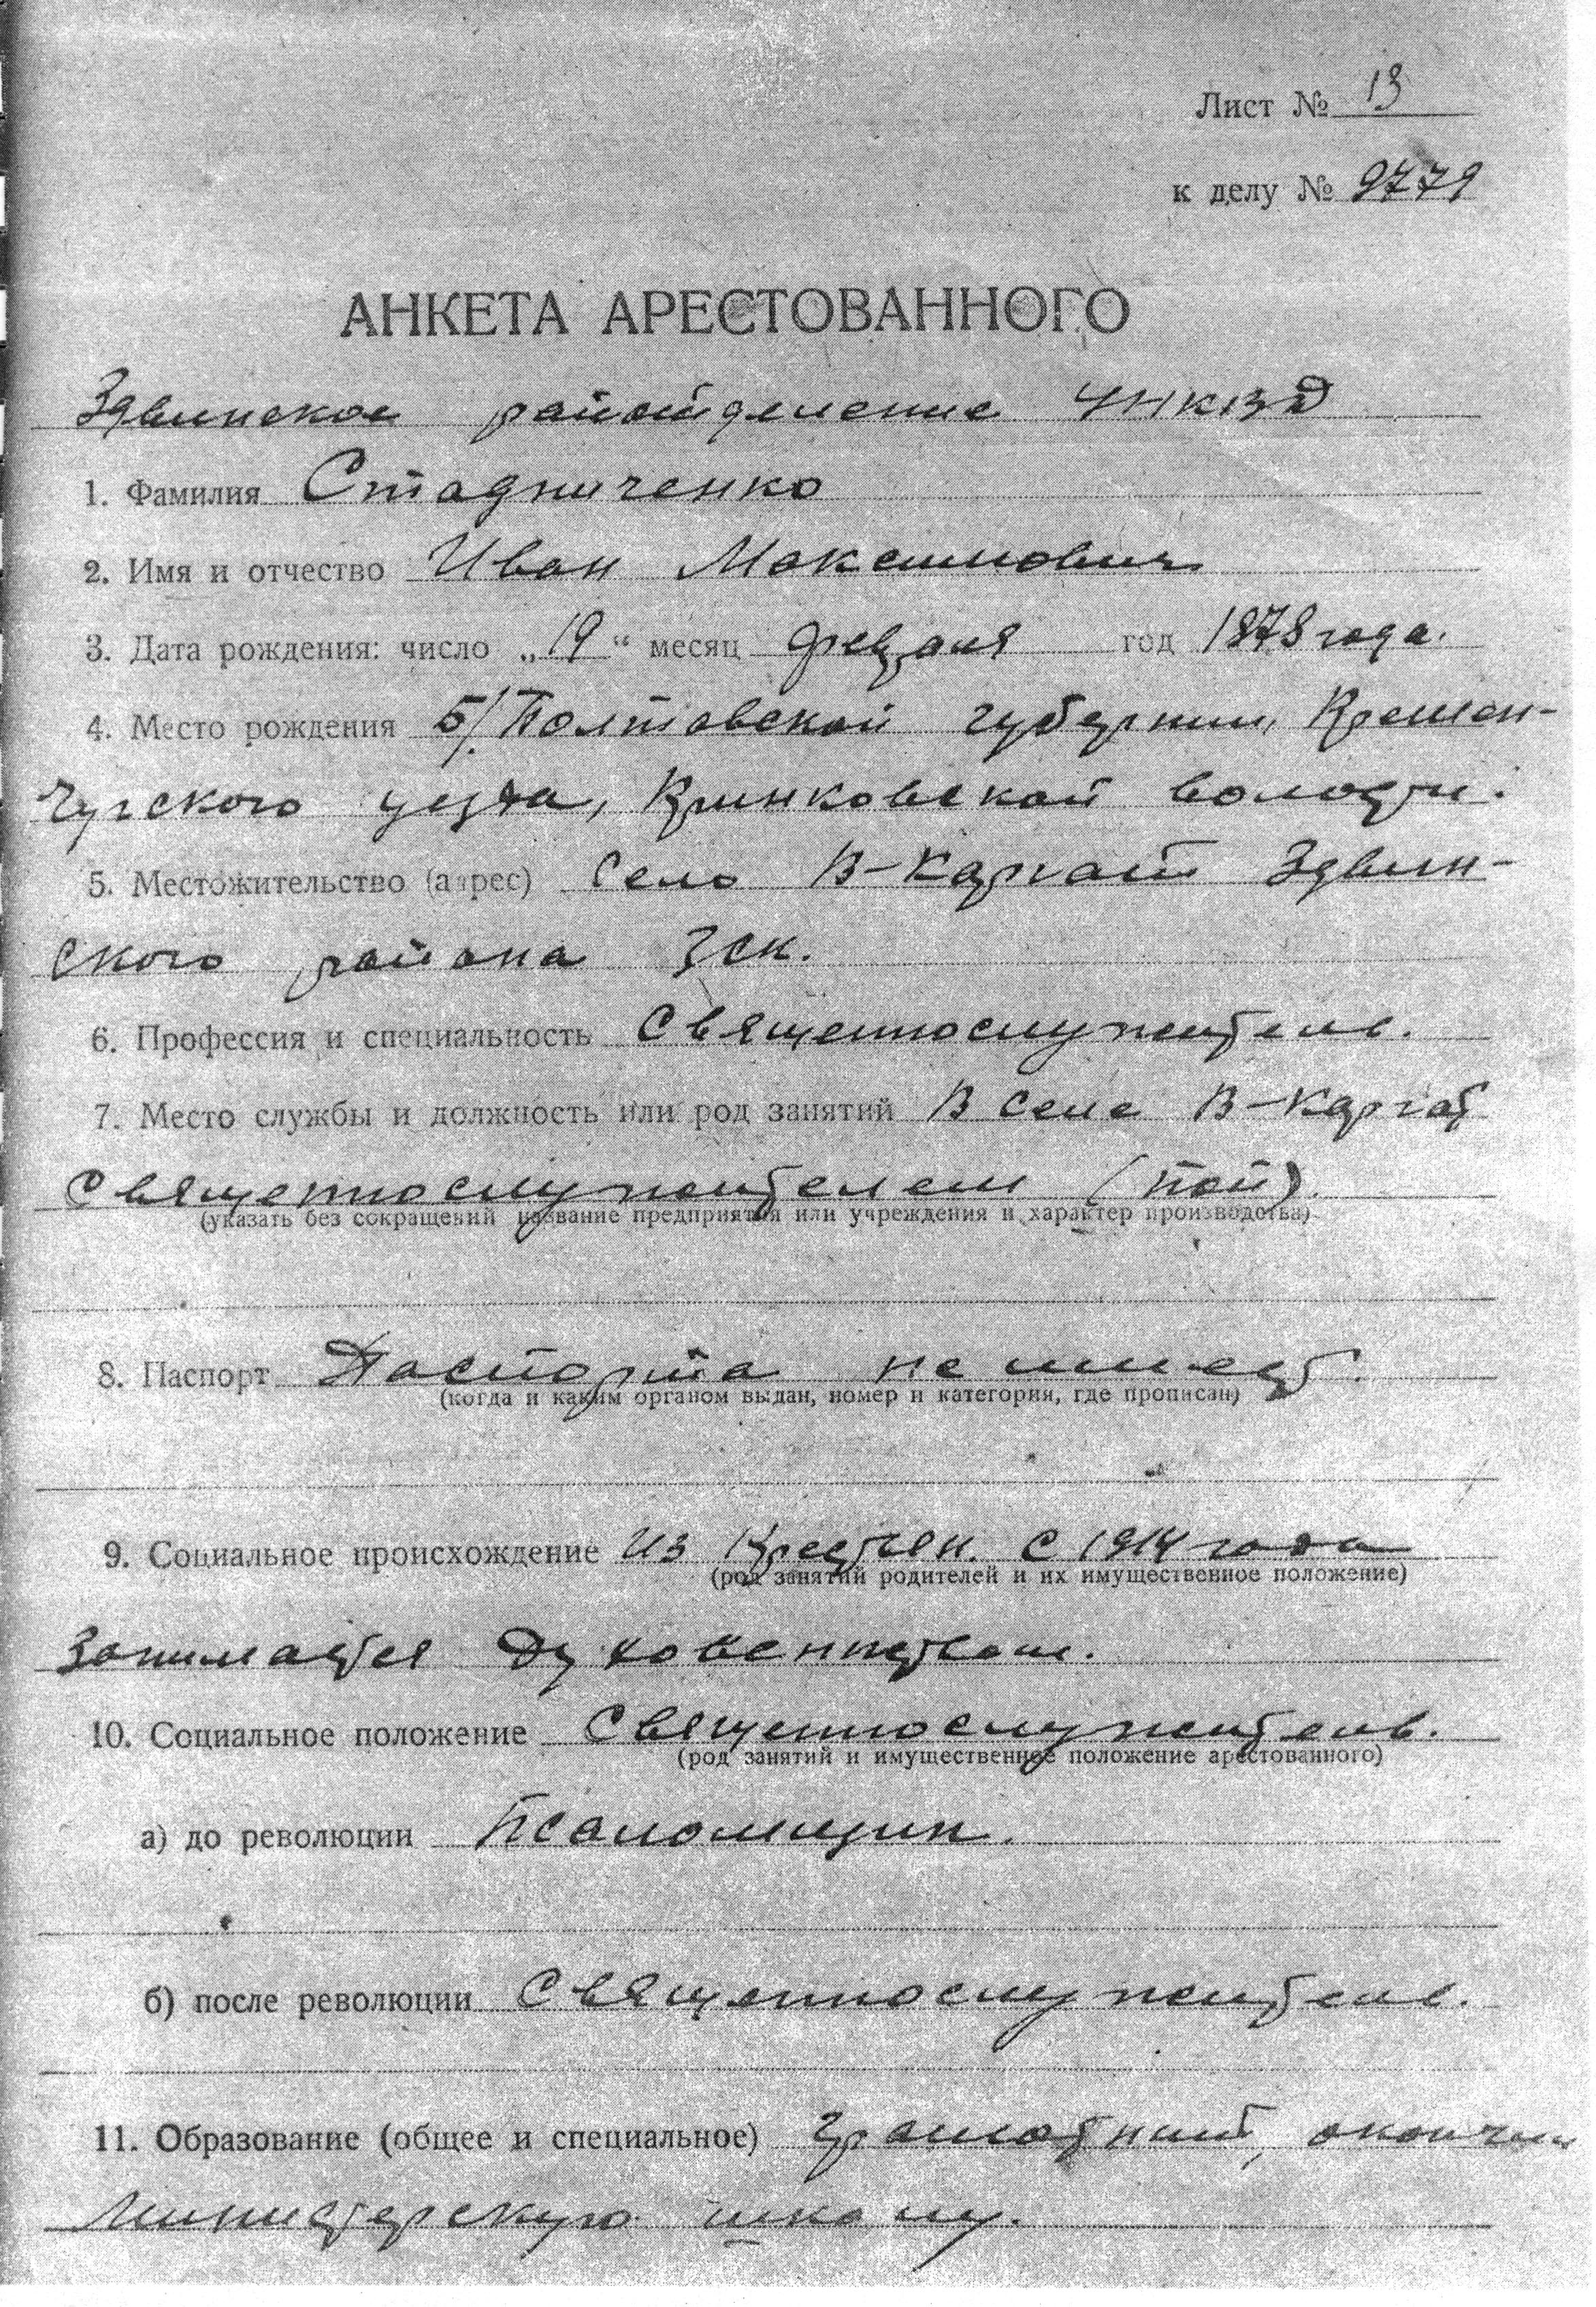 Лист № 13
к делу № 9779
АНКЕТА АРЕСТОВАННОГО
Здвинское райотделение УНКВД
1. Фамилия Стадниченко
2. Имя и отчество Иван Максимович
3. Дата рождения: число „19“ месяц февраля год 1878 года.
4. Место рождения б/. Полтавской губернии, Кремен-
чугского уезда, Кринковской волости.
5. Местожительство (адрес) Село В-Каргат Здвин-
ского района ЗСК.
6. Профессия и специальность Священнослужитель.
7. Место службы и должность или род занятий В селе В-Каргат
священнослужителем (поп).
(указать без сокращений название предприятия или учреждения и характер производства)
8. Паспорт Паспорта не имеет.
(когда и каким органом выдан, номер и категория, где прописан)
9. Социальное происхождение Из крестьян. С 1914 года
(род занятий родителей и их имущественное положение)
занимается духовенством.
10. Социальное положение Священнослужитель.
(род занятий и имущественное положение арестованного)
а) до революции Псаломщик.
б) после революции Священнослужитель.
11. Образование (общее и специальное) Грамотный, окончил
министерскую школу.